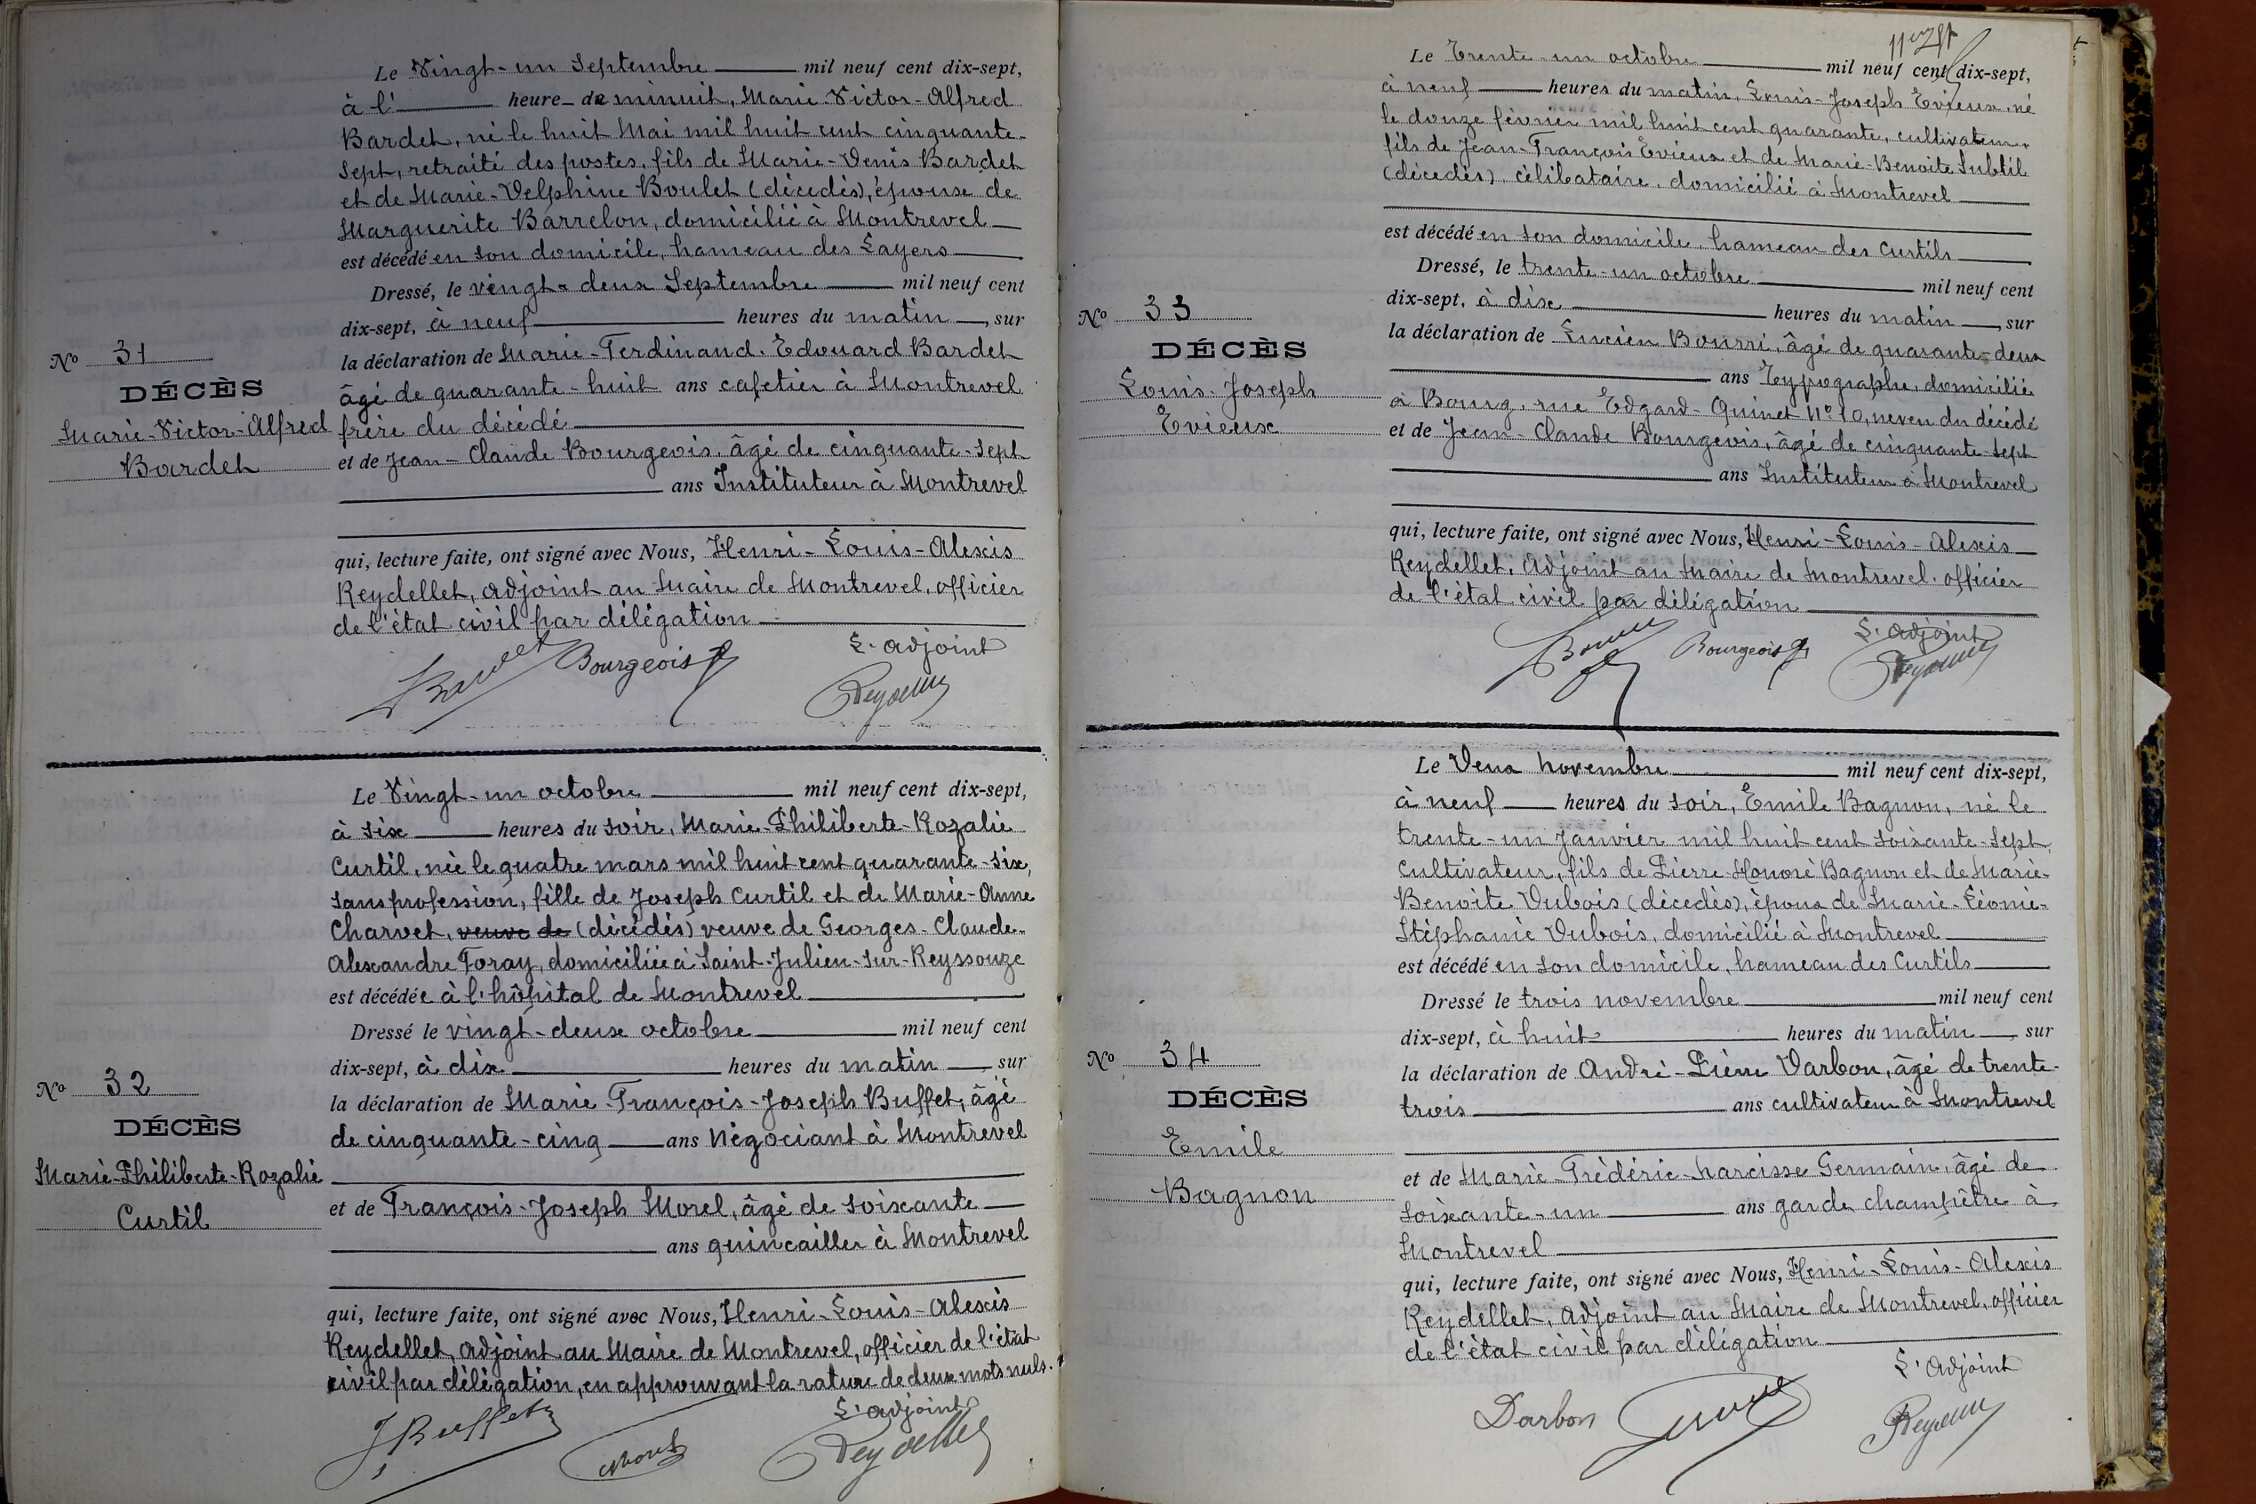 Le Vingt-un Septembre mil neuf cent dix-sept,
à l' heure de minuit, Marie Victor-Alfred
Bardet, né le huit Mai mil huit cent cinquante-
sept, retraité des postes, fils de Marie-Denis Bardet
et de Marie-Delphine Boulet (décédés), épouse de
Marguerite Barrelon, domicilié à Montrevel
est décédé en son domicile, hameau des Layers
Dressé, le vingt-deux Septembre mil neuf cent
dix-sept, à neuf heures du matin, sur
la déclaration de Marie-Ferdinand-Edouard Bardet
âgé de quarante-huit ans cafetier à Montrevel
frère du décédé
et de Jean-Claude Bourgeois, âgé de cinquante-sept
ans Instituteur à Montrevel
qui, lecture faite, ont signé avec Nous, Henri-Louis-Alexis
Reydellet, adjoint au Maire de Montrevel, officier
de l'état civil par délégation
L'adjoint
Bardet Bourgeois Reydellet
No 31
DÉCÈS
Marie-Victor-Alfred
Bardet
Le Vingt-un octobre mil neuf cent dix-sept,
à six heures du soir, Marie-Philiberte-Rozalie
Curtil, née le quatre mars mil huit cent quarante-six,
sans profession, fille de Joseph Curtil et de Marie-Anne
Charvet, veuve de (décédés) veuve de Georges-Claude-
Alexandre Foray, domiciliée à Saint-Julien-sur-Reyssouze
est décédée à l'hôpital de Montrevel
Dressé le vingt-deux octobre mil neuf cent
dix-sept, à dix heures du matin, sur
la déclaration de Marie-François-Joseph Buffet, âgé
de cinquante-cinq ans Négociant à Montrevel
et de François-Joseph Morel, âgé de soixante
ans quincailler à Montrevel
qui, lecture faite, ont signé avec Nous, Henri-Louis-Alexis
Reydellet, adjoint au Maire de Montrevel, officier de l'état
civil par délégation, en approuvant la rature de deux mots nuls.
L'adjoint
J Buffet Morel Reydellet
No 32
DÉCÈS
Marie-Philiberte-Rozalie
Curtil
Le Trente-un octobre mil neuf cent dix-sept,
à neuf heures du matin, Louis-Joseph Evieux, né
le douze février mil huit cent quarante, cultivateur,
fils de Jean-François Evieux et de Marie-Benoite Subtil
(décédés), célibataire, domicilié à Montrevel
est décédé en son domicile, hameau des Curtils
Dressé, le trente-un octobre mil neuf cent
dix-sept, à dix heures du matin, sur
la déclaration de Lucien Bourri, âgé de quarante-deux
ans Typographe, domicilié
à Bourg, rue Edgard-Quinet No 10, neveu du décédé
et de Jean-Claude Bourgeois, âgé de cinquante-sept
ans Instituteur à Montrevel
qui, lecture faite, ont signé avec Nous, Henri-Louis-Alexis
Reydellet, Adjoint au Maire de Montrevel, officier
de l'état civil par délégation
L'adjoint
Bourgeois Reydellet
No 33
DÉCÈS
Louis-Joseph
Evieux
Le Deux novembre mil neuf cent dix-sept,
à neuf heures du soir, Emile Bagnon, né le
trente-un Janvier mil huit cent soixante-sept,
Cultivateur, fils de Pierre-Honoré Bagnon et de Marie-
Benoite Dubois (décédés), époux de Marie-Léonie-
Stéphanie Dubois, domicilié à Montrevel
est décédé en son domicile, hameau des Curtils
Dressé le trois novembre mil neuf cent
dix-sept, à huit heures du matin, sur
la déclaration de André-Pierre Darbon, âgé de trente-
trois ans cultivateur à Montrevel
et de Marie-Frédéric-Narcisse Germain, âgé de
soixante-un ans garde champêtre à
Montrevel
qui, lecture faite, ont signé avec Nous, Henri-Louis-Alexis
Reydellet, Adjoint au Maire de Montrevel, officier
de l'état civil par délégation
L'adjoint
Darbon Reydellet
No 34
DÉCÈS
Emile
Bagnon